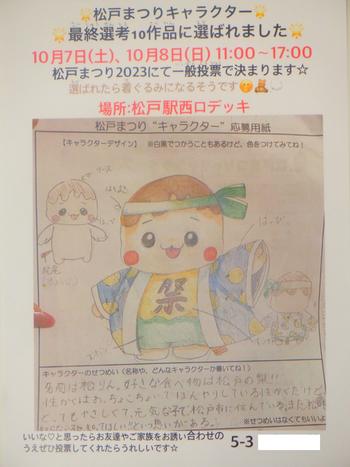 🌟松戸まつりキャラクター🌟
🌟最終選考10作品に選ばれました🌟
10月7日(土)、10月8日(日) 11:00~17:00
松戸まつり2023にて一般投票で決まります☆
選ばれたら着ぐるみになるそうです
場所:松戸駅西口デッキ
松戸まつり“キャラクター”応募用紙
【キャラクターデザイン】 ※白黒でつかうこともあるけど、色をつけてみてね!
はちまき
はっぴ
祭
キャラクターのせつめい(名称や、どんなキャラクターか書いてね!)
名前は松りん。好きな食べ物は松戸の梨!!
性かくはお。ちょこちょい てんやりしている性かくだけど
とってもやさしくて、元気な子で 松戸市に住んでいる。また松戸
という思いがある。
※せつめいはなくてもいいよ
いいな♡と思ったらお友達やご家族をお誘い合わせの
うえぜひ投票してくれたらうれしいです☆
5-3